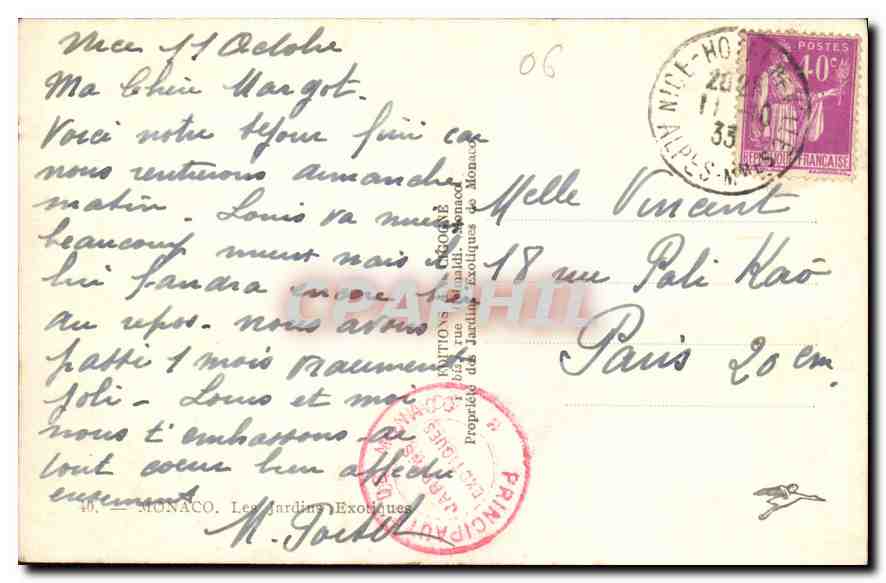 Nice 11 Octobre
06
Ma Chère Margot.
Voici notre séjour fini car
nous rentrerons dimanche
matin. Louis va mieux
beaucoup mieux mais il
lui faudra encore bien
du repos. nous avons
passé 1 mois vraiment
joli. Louis et moi
nous t'embrassons de
tout coeur bien affectu
eusement
M.
40. — MONACO. Les Jardins Exotiques
EDITIONS LA CIGOGNE
rue Grimaldi. Monaco
Propriété des Jardins Exotiques de Monaco
PRINCIPAUTÉ DE MONACO
JARDINS
EXOTIQUES
NICE-HO
ALPES-MMES
11 10
33
POSTES
40c
REPUBLIQUE FRANCAISE
Melle Vincent
18 rue Pali Kao
Paris 20 em.
CPAPHIL